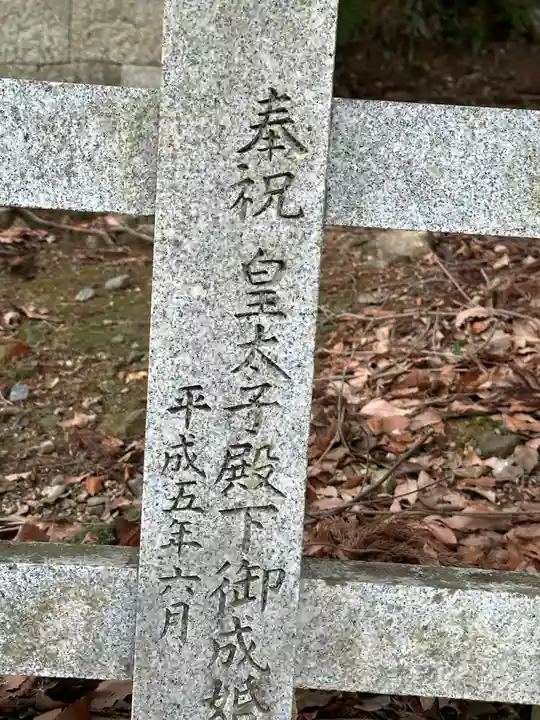 奉祝 皇太子殿下御成婚
平成五年六月